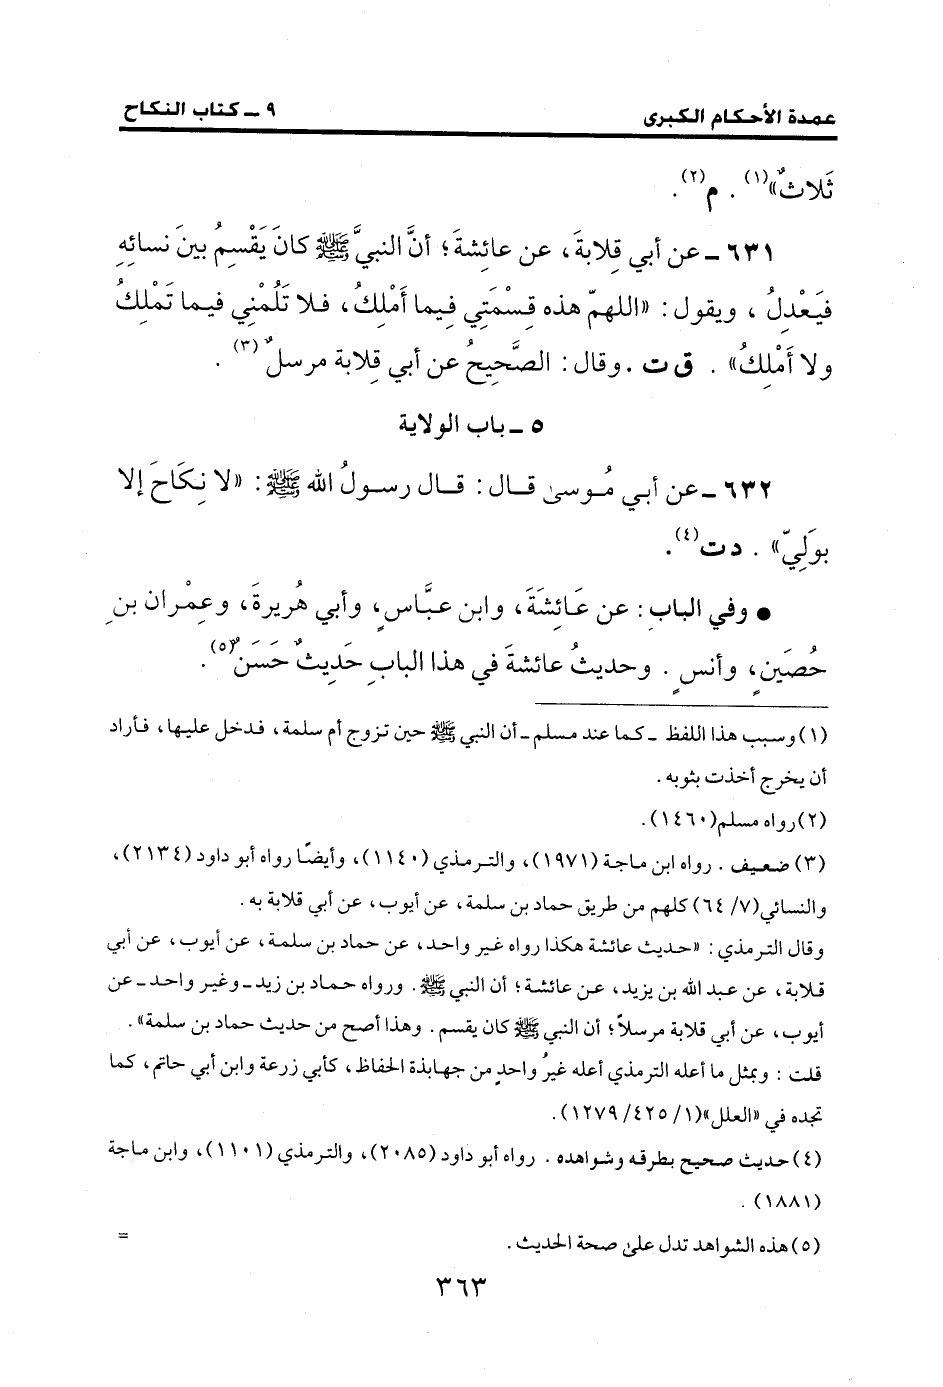 عمدة الأحكام الكبرى ٩ ـ كتاب النكاح
ثَلاثٌ»(١) . م(٢).
٦٣١ ـ عن أبي قِلابةَ، عن عائشةَ؛ أنَّ النبيَّ ﷺ كانَ يَقْسِمُ بينَ نسائِهِ
فيَعْدِلُ ، ويقول: «اللهمّ هذه قِسْمَتِي فِيما أَمْلِكُ، فلا تَلُمْنِي فيما تَمْلِكُ
ولا أَمْلِكُ» . ق ت . وقال: الصَّحِيحُ عن أبي قِلابة مرسلٌ(٣) .
٥ ـ باب الولاية
٦٣٢ ـ عن أبي مُوسىٰ قال: قال رسولُ الله ﷺ: «لا نِكَاحَ إلا
بوَلِيّ» . د ت(٤).
● وفي البابِ: عن عَائِشَةَ، وابن عبَّاسٍ، وأبي هُريرةَ، وعِمْران بنِ
حُصَينٍ، وأنسٍ . وحديثُ عائشةَ في هذا البابِ حَدِيثٌ حَسَنٌ(٥).
(١) وسبب هذا اللفظ ـ كما عند مسلم ـ أن النبي ﷺ حين تزوج أم سلمة، فدخل عليها، فأراد
أن يخرج أخذت بثوبه .
(٢) رواه مسلم (١٤٦٠).
(٣) ضعيف . رواه ابن ماجة (١٩٧١)، والترمذي (١١٤٠)، وأيضًا رواه أبو داود (٢١٣٤)،
والنسائي (٧/ ٦٤) كلهم من طريق حماد بن سلمة، عن أيوب، عن أبي قلابة به .
وقال الترمذي: «حديث عائشة هكذا رواه غير واحد، عن حماد بن سلمة، عن أيوب، عن أبي
قلابة، عن عبد الله بن يزيد، عن عائشة؛ أن النبي ﷺ. ورواه حماد بن زيد ـ وغير واحد ـ عن
أيوب، عن أبي قلابة مرسلاً؛ أن النبي ﷺ كان يقسم. وهذا أصح من حديث حماد بن سلمة» .
قلت: وبمثل ما أعله الترمذي أعله غيرُ واحدٍ من جهابذة الحفاظ، كأبي زرعة وابن أبي حاتم، كما
تجده في «العلل» (١/ ٤٢٥/ ١٢٧٩).
(٤) حديث صحيح بطرقه وشواهده . رواه أبو داود (٢٠٨٥)، والترمذي (١١٠١)، وابن ماجة
(١٨٨١) .
(٥) هذه الشواهد تدل علىٰ صحة الحديث . =
٣٦٣